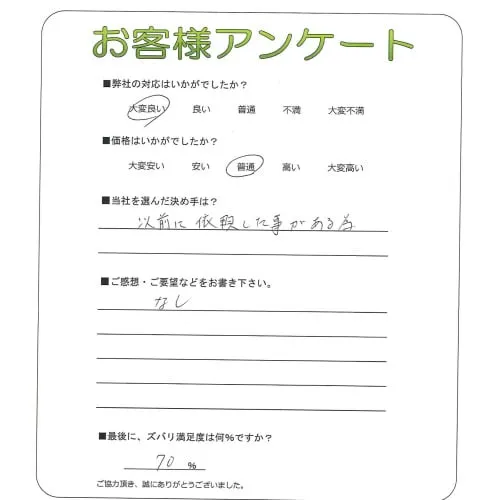 お客様アンケート
■弊社の対応はいかがでしたか？
大変良い 良い 普通 不満 大変不満
■価格はいかがでしたか？
大変安い 安い 普通 高い 大変高い
■当社を選んだ決め手は？
以前に依頼した事がある為
■ご感想・ご要望などをお書き下さい。
なし
■最後に、ズバリ満足度は何%ですか？
70 %
ご協力頂き、誠にありがとうございました。